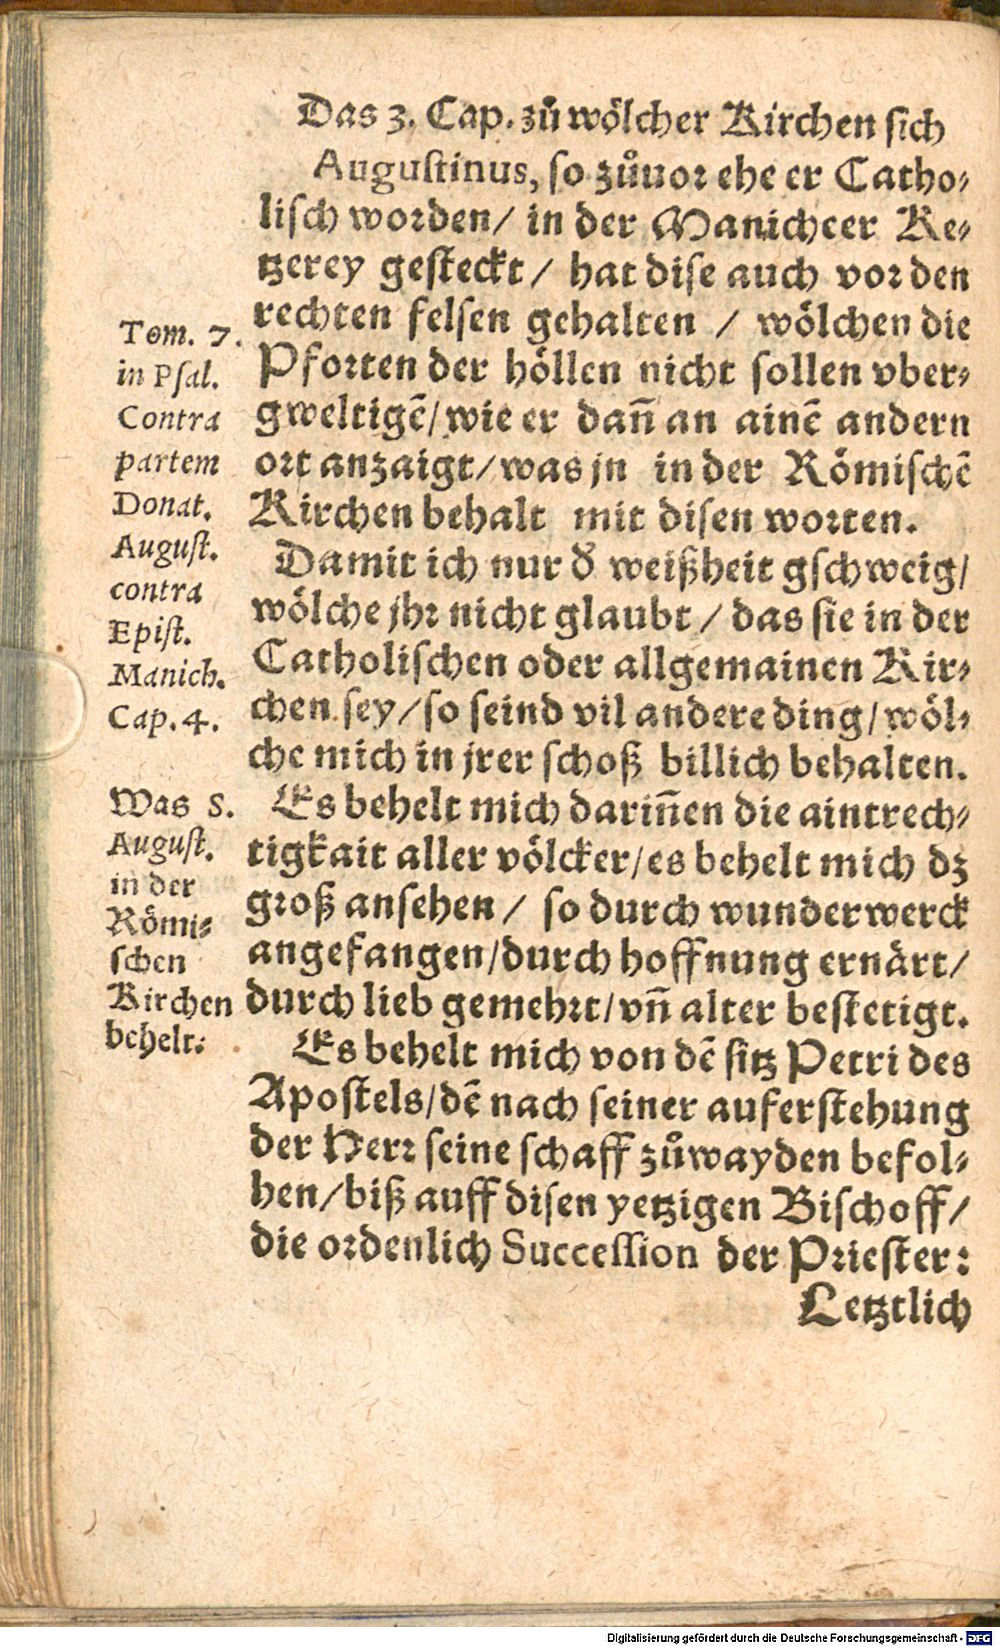 Das 3. Cap. zů wölcher Kirchen sich
Augustinus, so zůuor ehe er Catho⸗
lisch worden/ in der Manicheer Ke⸗
tzerey gesteckt/ hat dise auch vor den
rechten felsen gehalten / wölchen die
Pforten der höllen nicht sollen vber⸗
gweltigē/ wie er dañ an ainē andern
ort anzaigt/ was jn in der Römischē
Kirchen behalt mit disen worten.
Damit ich nur d' weißheit gschweig/
wölche jhr nicht glaubt / das sie in der
Catholischen oder allgemainen Kir⸗
chen sey/ so seind vil andere ding/ wöl⸗
che mich in jrer schoß billich behalten.
Es behelt mich dariñen die aintrech⸗
tigkait aller völcker/ es behelt mich dz
groß ansehen / so durch wunderwerck
angefangen/ durch hoffnung ernärt/
durch lieb gemehrt/ vñ alter bestetigt.
Es behelt mich von dē sitz Petri des
Apostels/ dē nach seiner auferstehung
der Herr seine schaff zůwayden befol⸗
hen/ biß auff disen yetzigen Bischoff/
die ordenlich Succession der Priester:
Letztlich
Tom. 7.
in Psal.
Contra
partem
Donat.
August.
contra
Epist.
Manich.
Cap. 4.
Was S.
August.
in der
Römi⸗
schen
Kirchen
behelt.
Digitalisierung gefördert durch die Deutsche Forschungsgemeinschaft - DFG